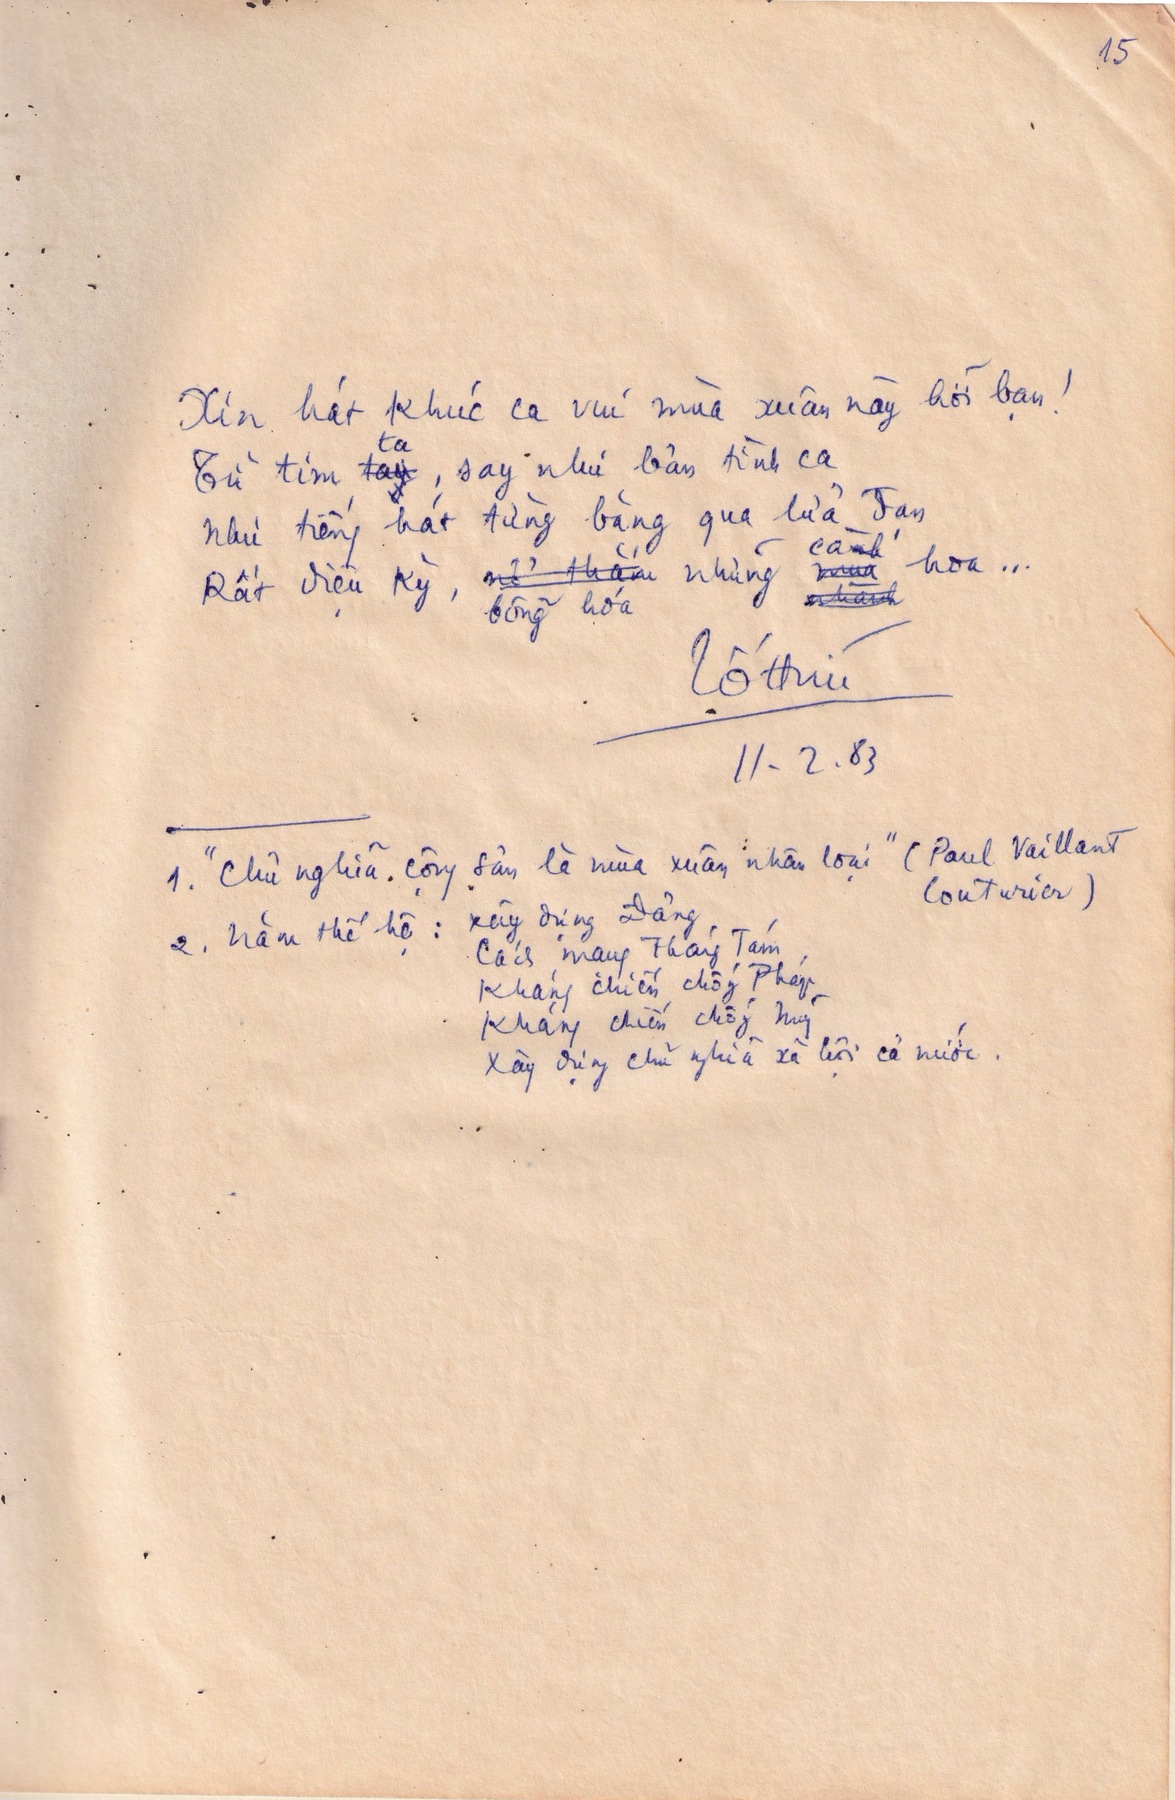 15
Xin hát khúc ca vui mùa xuân này hỡi bạn!
Từ tim ta, say như bản tình ca
Như tiếng hát từng bừng qua lửa đạn
Rất diệu kỳ, nở thắm những cành hoa...
bỗng hóa
Tố Hữu
11-2.83
1. "Chủ nghĩa cộng sản là mùa xuân nhân loại" (Paul Vaillant
Couturier)
2. Năm thế hệ: Xây dựng Đảng
Cách mạng Tháng Tám
Kháng chiến chống Pháp
Kháng chiến chống Mỹ
Xây dựng chủ nghĩa xã hội cả nước.